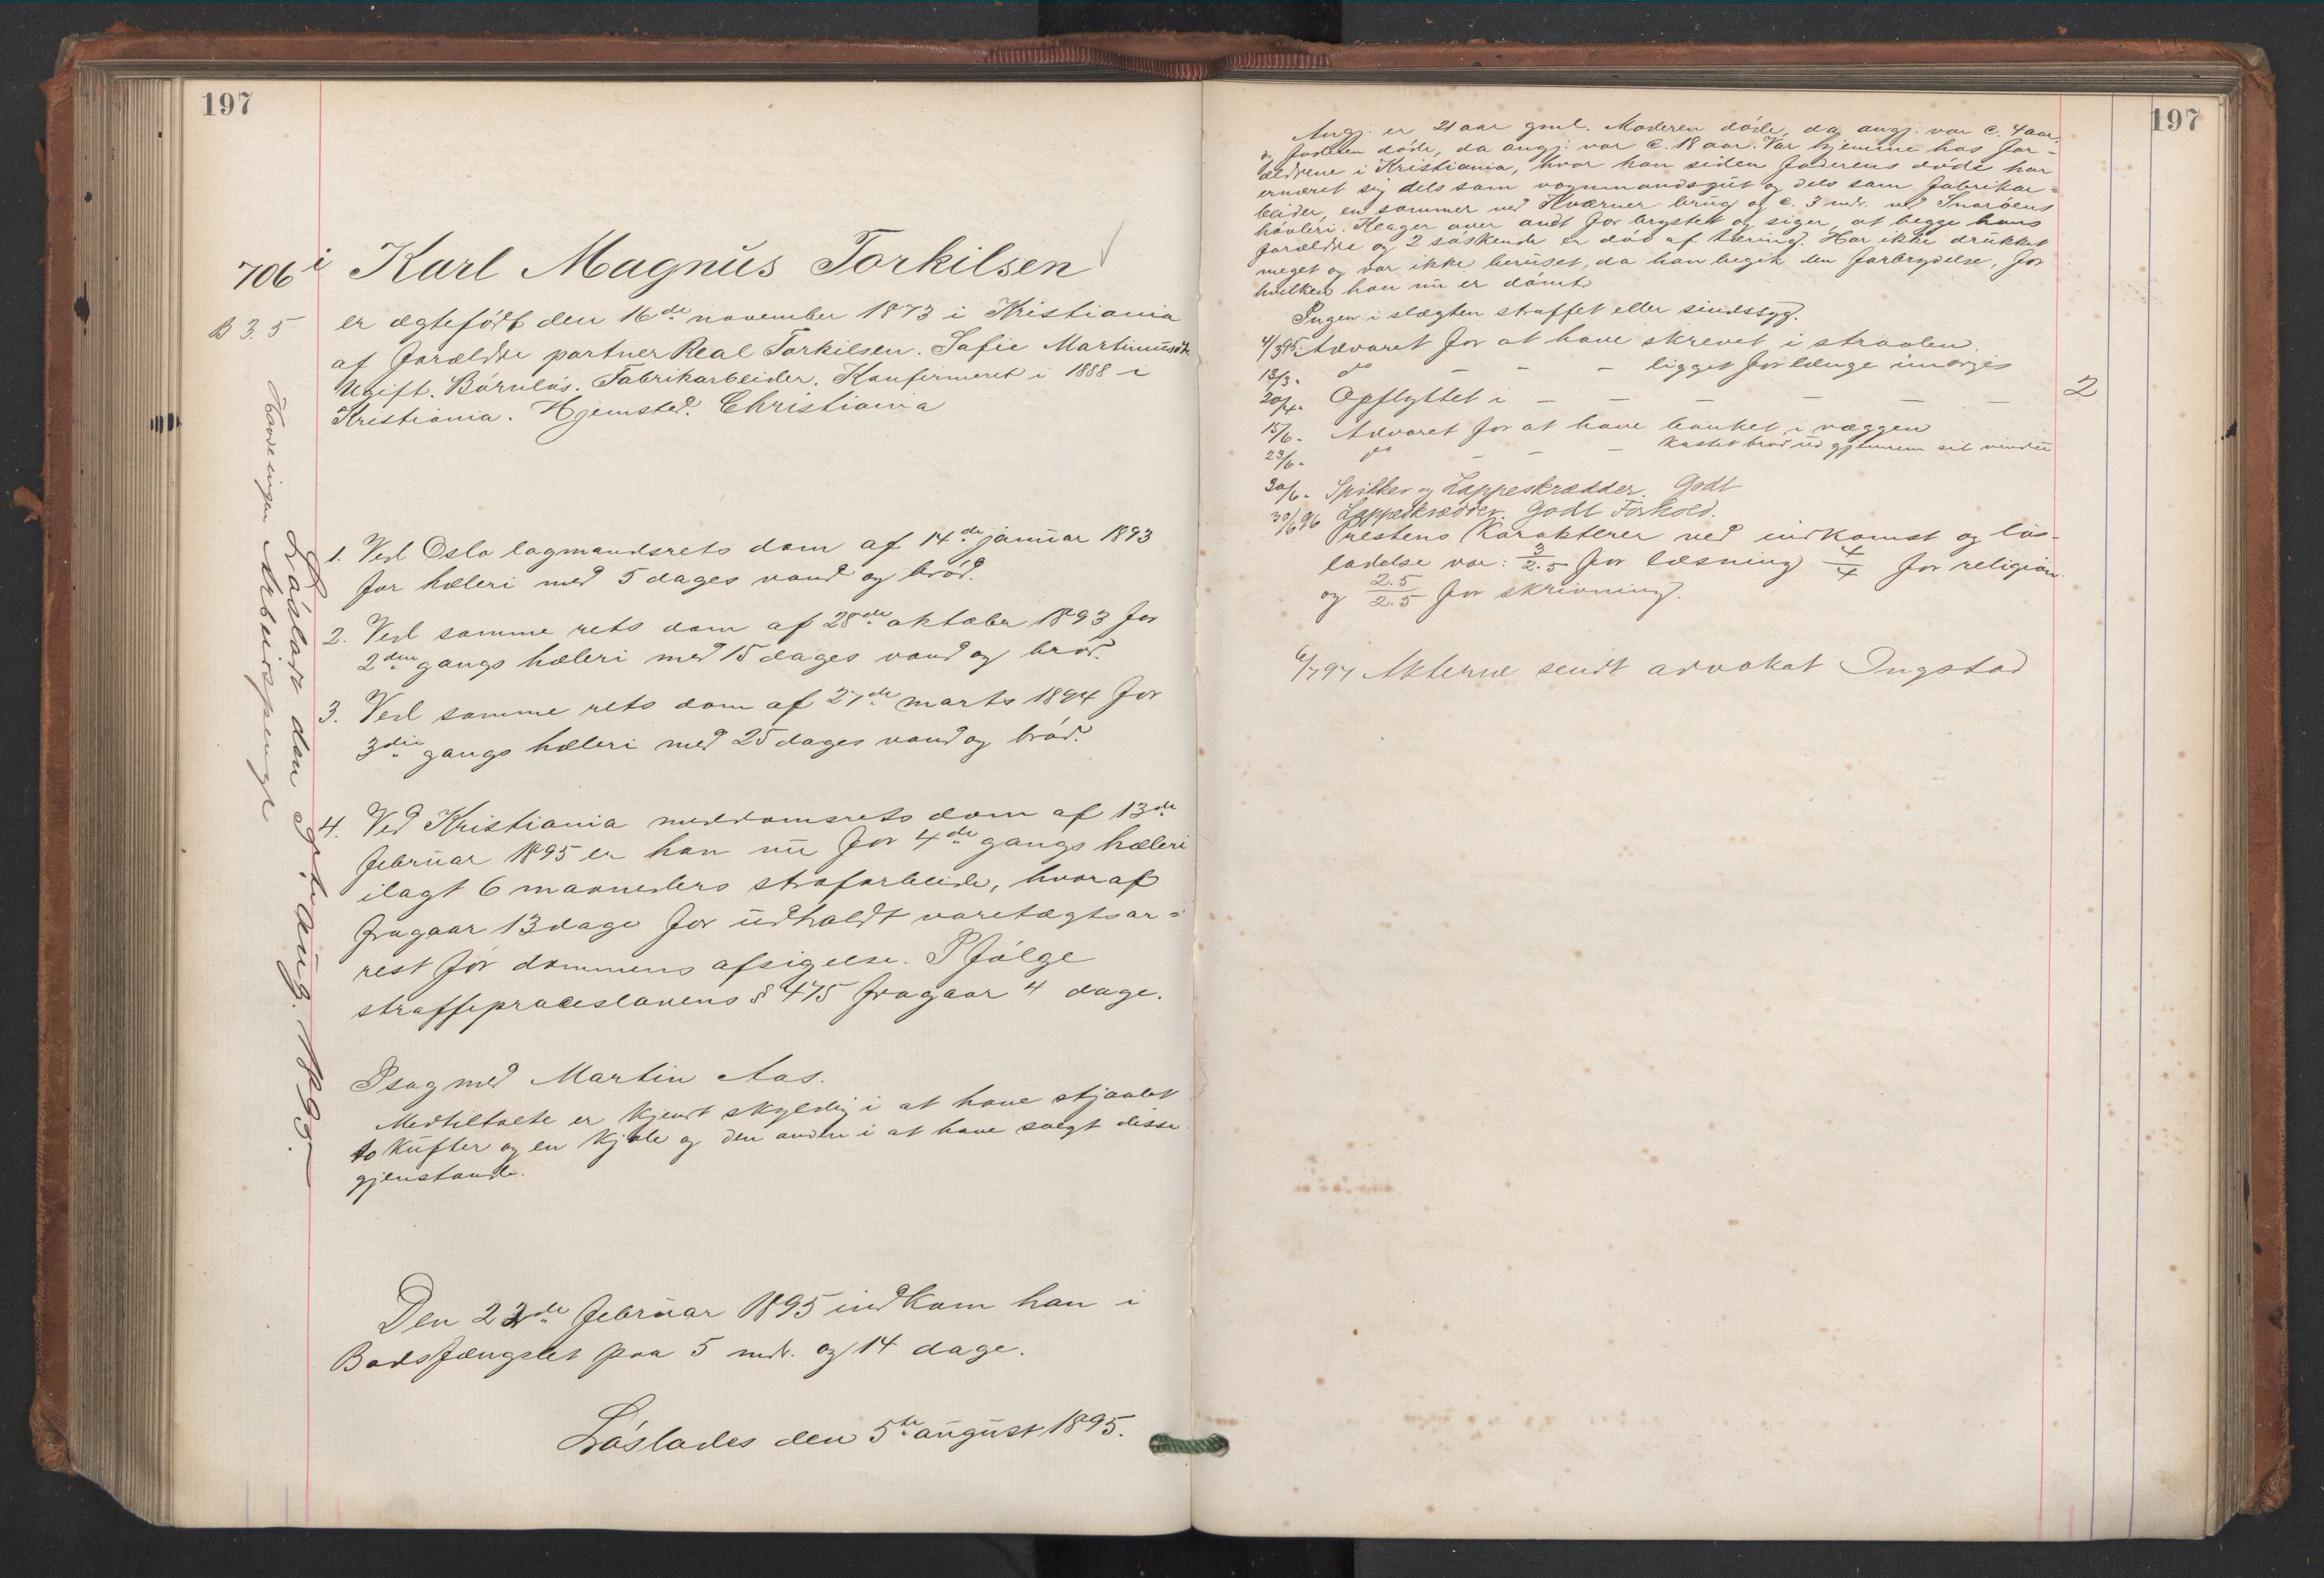 197
706 i Karl Magnus Torkilsen
B 3.5
er ægtefødt den 16de november 1873 i Kristiania
af forældre portner Real Torkilsen. Sofie Martinusdtr
Ugift. Børnløs. Fabrikarbeider. Konfirmeret i 1888 i
Kristiania. Hjemsted. Christiania
Løsladt den
Aug. 1895.
Arbeidspenge
1. Ved Oslo lagmandsrets dom af 14de januar 1893
for hæleri med 5 dages vand og brød.
2. Ved samme rets dom af 28de oktober 1893 for
2den gangs hæleri med 15 dages vand og brød.
3. Ved samme rets dom af 27de marts 1894 for
3die gangs hæleri med 25 dages vand og brød.
4. Ved Kristiania meddomsrets dom af 13de
februar 1895 er han nu for 4de gangs hæleri
ilagt 6 maaneders strafarbeide, hvoraf
fragaar 13 dage for udholdt varetægtsar=
rest før dommens afsigelse. Ifølge
straffeproceslovens § 475 fragaar 4 dage.
I sag med Martin Aas.
Medtiltalte er kjendt skyldig i at have stjaalet
to Kufter og en Kjole og den anden i at have solgt disse
gjenstande.
Den 22de februar 1895 indkom han i
Bodsfængslet paa 5 mdr. og 14 dage.
Løslades den 5te august 1895.
197
Angj. er 21 aar gml. Moderen døde, da angj. var c. 4 aar,
og faderen døde, da angj. var c. 18 aar. Var hjemme hos for-
ældrene i Kristiania, hvor han siden faderens døde har
ernæret sig dels som vognmandsgut og dels som fabrikar=
beider, en sommer ved Kværner brug og c. 3 mdr. ved Snarøens
høvleri. Klager over ondt for brystet og siger, at begge hans
forældre og 2 søskende er død af tæring. Har ikke drukket
meget og var ikke beruset, da han begik den forbrydelse, for
hvilken han nu er dømt.
Ingen i slægten straffet eller sindssyg.
4/3 95. Advaret for at have skrevet i straalen
12/3 " do - - - ligget for længe imorges
20/4 " Opflyttet i - - - - - - 2
15/6 " Advaret for at have banket i væggen
23/6 " do - - - kastet brød ud gjennem sit vindu
30/6 " Spikker og Lappeskrædder. Godt
30/6 96 Lappeskrædder. Godt Forhold.
Prestens Karakterer ved indkomst og løs-
ladelse var: 3/2.5 for læsning 4/4 for religion
og 2.5/2.5 for skrivning.
6/7 97 Akterne sendt advokat Ingstad